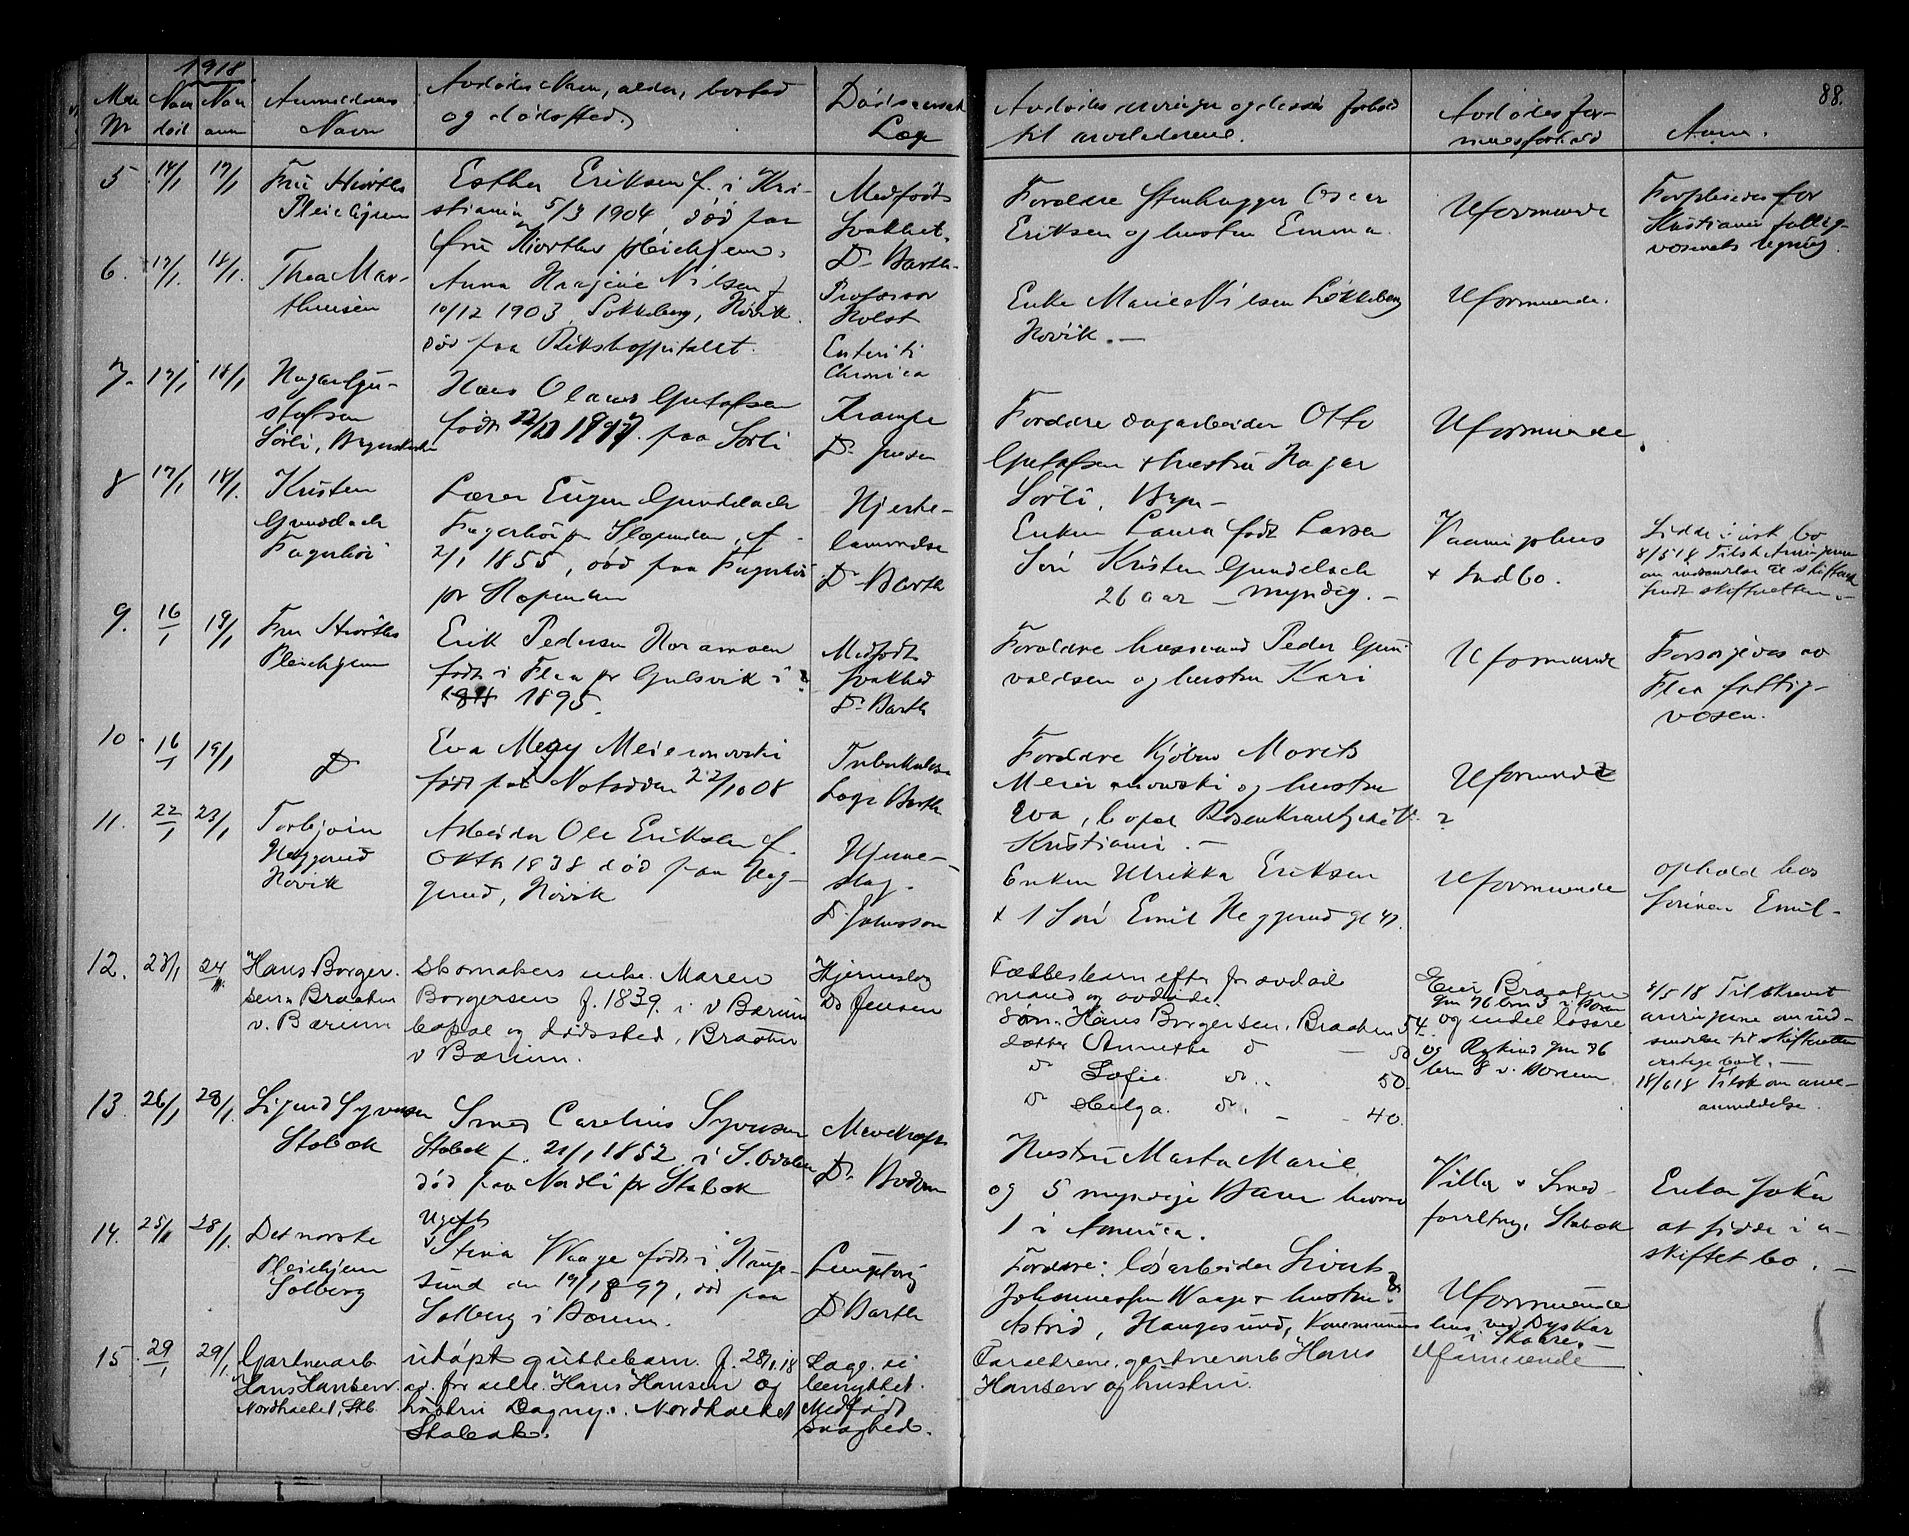 1918.
88.
Nr
Navn
Avdødes Navn, alder, bosted
og dødssted.
Dødsaarsak
Læge
Avdødes arvinger og disses forhold
til
Avdødes for-
muesforhold
Anm.
5 14/1 17/1 Fru Hiorths
Pleiehjem
Esther Eriksen f. i Kri-
stiania 5/3 1904 død paa
fru Hiorths pleiehjem.
Medfødt
svakhet.
Dr Barth.
Foreldre Stenhugger Oscar
Eriksen og hustru Emma.
Uformuende
Forpleiedes for
Kristiania fattig-
væsenets regning.
6. 17/1 18/1. Thea Mar-
thinsen
Anna Nilsen f.
10/12 1903, Løkkeberg, Høvik.
død paa Rikshospitalet.
Professor
Holst
Enteriti
Chronica
Enke Marie Nilsen Løkkeberg
Høvik. —
Uformuende.
7. 17/1 18/1 Hagar Gu-
stafsen
Sørli,
Hans Olaus Gustafsen
født 1917 paa Sørli
Krampe
Dr Jensen
Foreldre dagarbeider Otto
Gustafsen + hustru Hagar
Sørli,
Uformuende.
8 17/1 18/1. Kristen
Gundelach
Fagerhøi
Lærer Eugen Gundelach
Fagerhøi pr Slependen, f.
2/1 1855, død paa Fagerhøi
pr Slependen
Hjerte-
lammelse
Dr Barth
Enken Laura født Larsen
Søn Kristen Gundelach
26 aar — myndig. —
Vaaningshus
+ Indbo.
Sidde i uskiftet bo
8/5 18 Tilsk. Arvingerne
om indsendelse til skifteretten
9. 16/1 19/1 Fru Hiorths
Pleiehjem
Erik Pedersen
født i Flaa pr Gulsvik i ?
1895.
Medfødt
svakhed
Dr Barth
Foreldre husmand Peder Gun-
valdsen og hustru Kari
Uformuende
Forsørgedes av
Flaa fattig-
væsen.
10. 16/1 19/1 Do
Eva Mery Meieranowski
født paa Notodden 22/10 08
Tuberkulose
Læge Barth
Foreldre Kjøbm Morits
Meieranowski og hustru
Eva, bopæl
Kristiania. —
Uformuende
?
11. 22/1 23/1 Torbjørn
Heggerud
Høvik
Arbeider Ole Eriksen f.
Oktb 1838 død paa Heg-
gerud, Høvik
Hjerne-
slag.
Dr. Johnsson
Enken Ulrikka Eriksen
+ 1 Søn Emil Heggerud
Uformuende
ophold hos
sønnen Emil —
12. 23/1 24/1 Hans Borger-
sen Braaten
v. Bærum
Skomakers enke Maren
Borgersen f. 1839 i V Bærum
bopæl og dødssted, Braaten
V Bærum.
Hjerneslag
Dr Jensen
Fællesbarn efter før avdøde
mand og avdøde.
Søn. Hans Borgersen. Braaten 54.
datter Annette do — 50
do Sofie do — 50.
do Helga. do. — 40.
Eier Braaten
gnr 76 brnr 3 i Bærum
og endel løsøre
og Rykind gnr 76
brnr 8 v. Bærum
8/5 18 Tilskrevet
arvingerne om ind-
sendelse til skifteretten
18/6 18 Tilsk om arve-
anmeldelse.
13. 26/1 28/1. Sigurd Syversen
Stabæk
Smed Carelius Syversen
Stabæk f. 21/1 1852 i S. Odalen
død paa Nordli pr Stabæk
Dr
Hustru Marta Marie
og 5 myndige Barn hvorav
1 i America.
Villa + Smed-
forretning, Stabæk
Enken søker
at sidde i u-
skiftet bo. —
14. 25/1 28/1. Det norske
Pleiehjem
Solberg
Ugift
Stina Waage født i Hauge-
sund den 19/1 897, død paa
Solberg i Bærum.
Dr Barth
Foreldre: løsarbeider Sivert
Johannessen Waage + hustru
Astrid, Haugesund,
Uformuende
i Skaare. —
15. 29/1 29/1 Gartnerarb
Hans Hansen
Nordhaehet, Stb.
udøpt guttebarn. f. 28/1 18
Hans Hansen og
hustru Dagny. Nordhaehet
Stabæk.
Læge ei
benyttet.
Medfødt
svaghed.
Forældrene, gartnerarb Hans
Hansen og hustru.
Uformuende